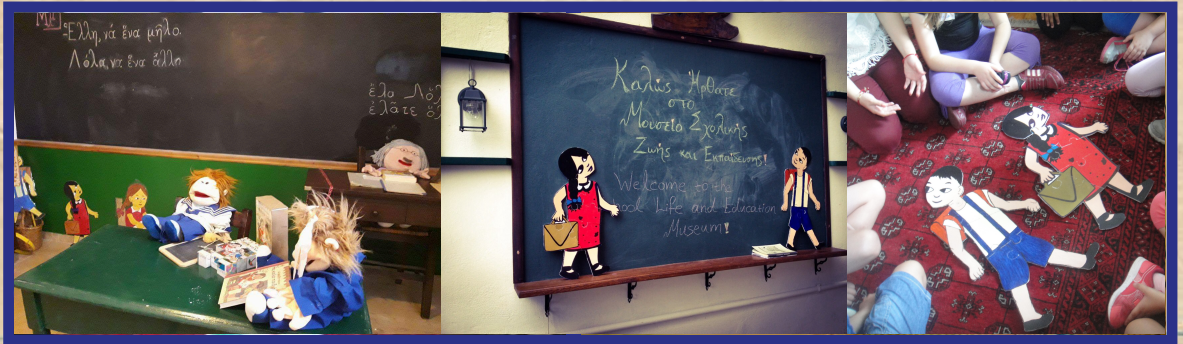 Ἔλλη, νά ἕνα μῆλο.
Λόλα, να ἕνα ἄλλο
ἔλα
ἐλᾶτε
Καλώς Ήρθατε
στο
Μουσείο Σχολικής
Ζωής και Εκπαίδευσης!
Welcome to the
ool Life and Education
Museum!